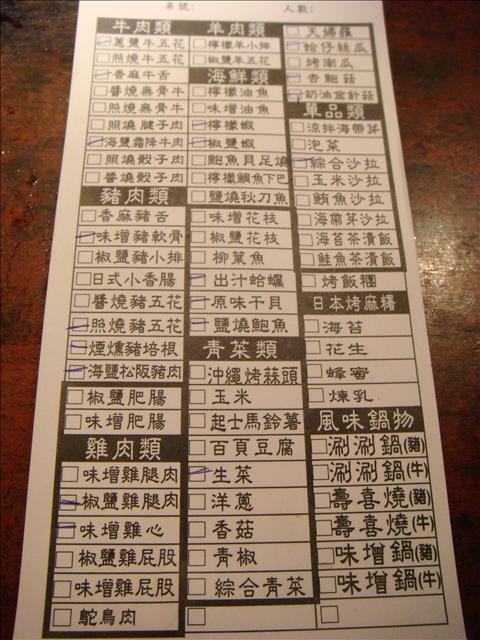 桌號：
人數：
牛肉類
蔥鹽牛五花
照燒牛五花
香麻牛舌
醬燒無骨牛
照燒無骨牛
照燒腱子肉
海鹽霜降牛肉
照燒骰子肉
醬燒骰子肉
豬肉類
香麻豬舌
味增豬軟骨
椒鹽豬小排
日式小香腸
醬燒豬五花
照燒豬五花
煙燻豬培根
海鹽松阪豬肉
椒鹽肥腸
味增肥腸
雞肉類
味增雞腿肉
椒鹽雞腿肉
味增雞心
椒鹽雞屁股
味增雞屁股
鴕鳥肉
羊肉類
檸檬羊小排
椒鹽羊五花
海鮮類
檸檬油魚
味增油魚
檸檬蝦
椒鹽蝦
鮑魚貝足燒
檸檬鯛魚下巴
鹽燒秋刀魚
味增花枝
椒鹽花枝
柳葉魚
出汁蛤蠣
原味干貝
鹽燒鮑魚
青菜類
沖繩烤蒜頭
玉米
起士馬鈴薯
百頁豆腐
生菜
洋蔥
香菇
青椒
綜合青菜
天婦羅
蛤仔絲瓜
烤南瓜
杏鮑菇
奶油金針菇
單品類
涼拌海帶芽
泡菜
綜合沙拉
玉米沙拉
鮪魚沙拉
海帶芽沙拉
海苔茶漬飯
鮭魚茶漬飯
烤飯糰
日本烤麻糬
海苔
花生
蜂蜜
煉乳
風味鍋物
涮涮鍋(豬)
涮涮鍋(牛)
壽喜燒(豬)
壽喜燒(牛)
味增鍋(豬)
味增鍋(牛)